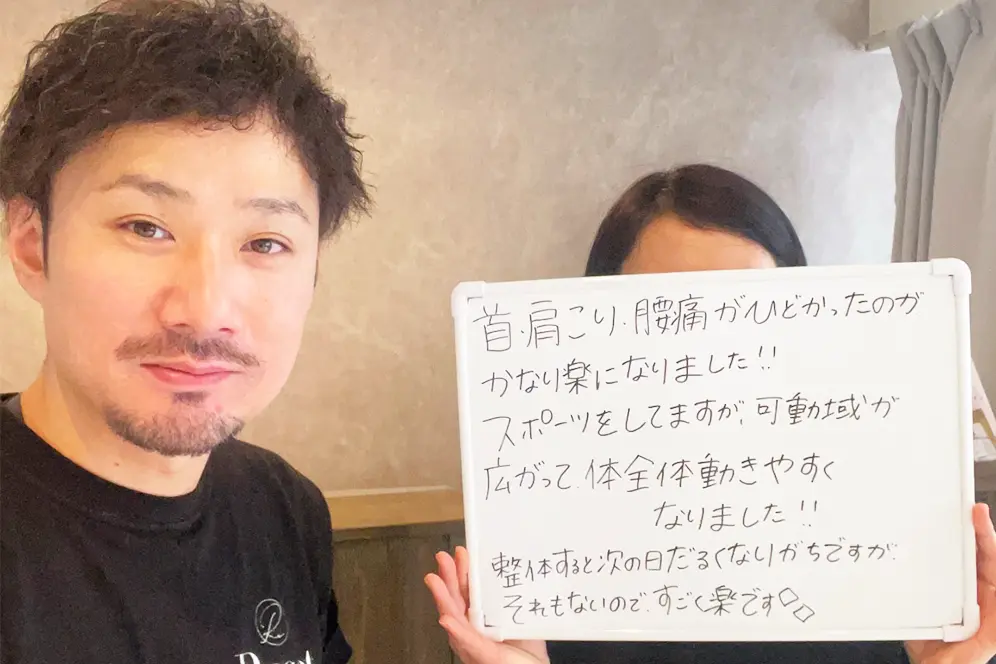 首・肩こり・腰痛がひどかったのが
かなり楽になりました!!
スポーツをしてますが、可動域が
広がって、体全体動きやすく
なりました!!
整体すると次の日だるくなりがちですが、
それもないので、すごく楽です◇◇
R